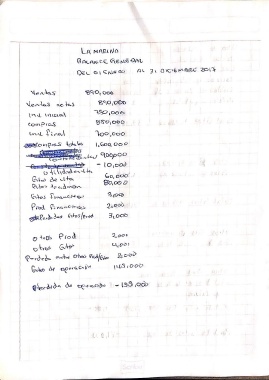 LA MARINA
BALANCE GENERAL
DEL 01 ENERO AL 31 DICIEMBRE 2017
Ventas 890,000
Ventas netas 890,000
Inv inicial 750,000
compras 850,000
inv final 700,000
compras totales 1,600,000
900000
- 10,000
utilidad vta
Gtos de vta 60,000
Gtos admon 80,000
Gtos financieros
Prod financieros 2,000
Perdidas Gtos/prod 3,000
otros Prod 2,001
otros Gtos 4,001
Perdida entre otros Prod/Gto 2,000
Gtos de operación 145,000
Perdida de operación -155,000